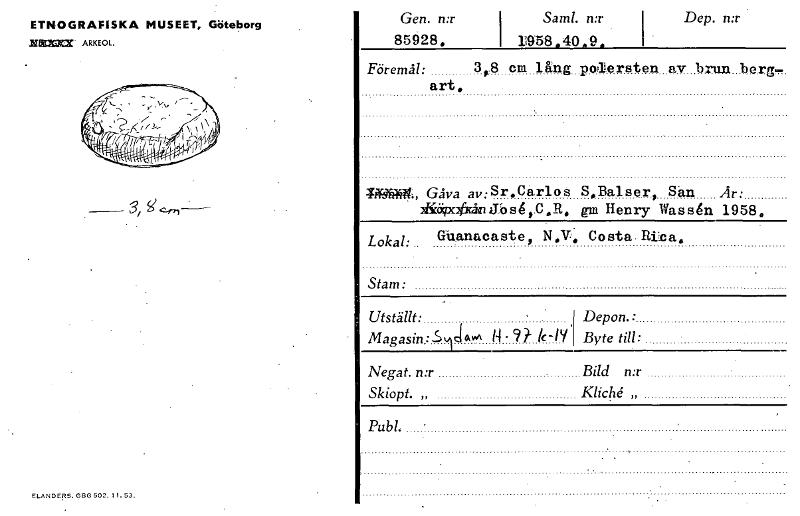 ETNOGRAFISKA MUSEET, Göteborg
ARKEOL.
3,8 cm
ELANDERS. GBG 502. 11. 53.
Gen. n:r Saml. n:r Dep. n:r
85928. 1958.40.9.
Föremål: 3,8 cm lång polersten av brun berg-
art.
Insaml., Gåva av: Sr.Carlos S.Balser, San År:
Köpt från José,C.R. gm Henry Wassén 1958.
Lokal: Guanacaste, N.V. Costa Rica.
Stam:
Utställt: Depon.:
Magasin: Sydam H-97 k-14 Byte till:
Negat. n:r Bild n:r
Skiopt. „ Kliché „
Publ.